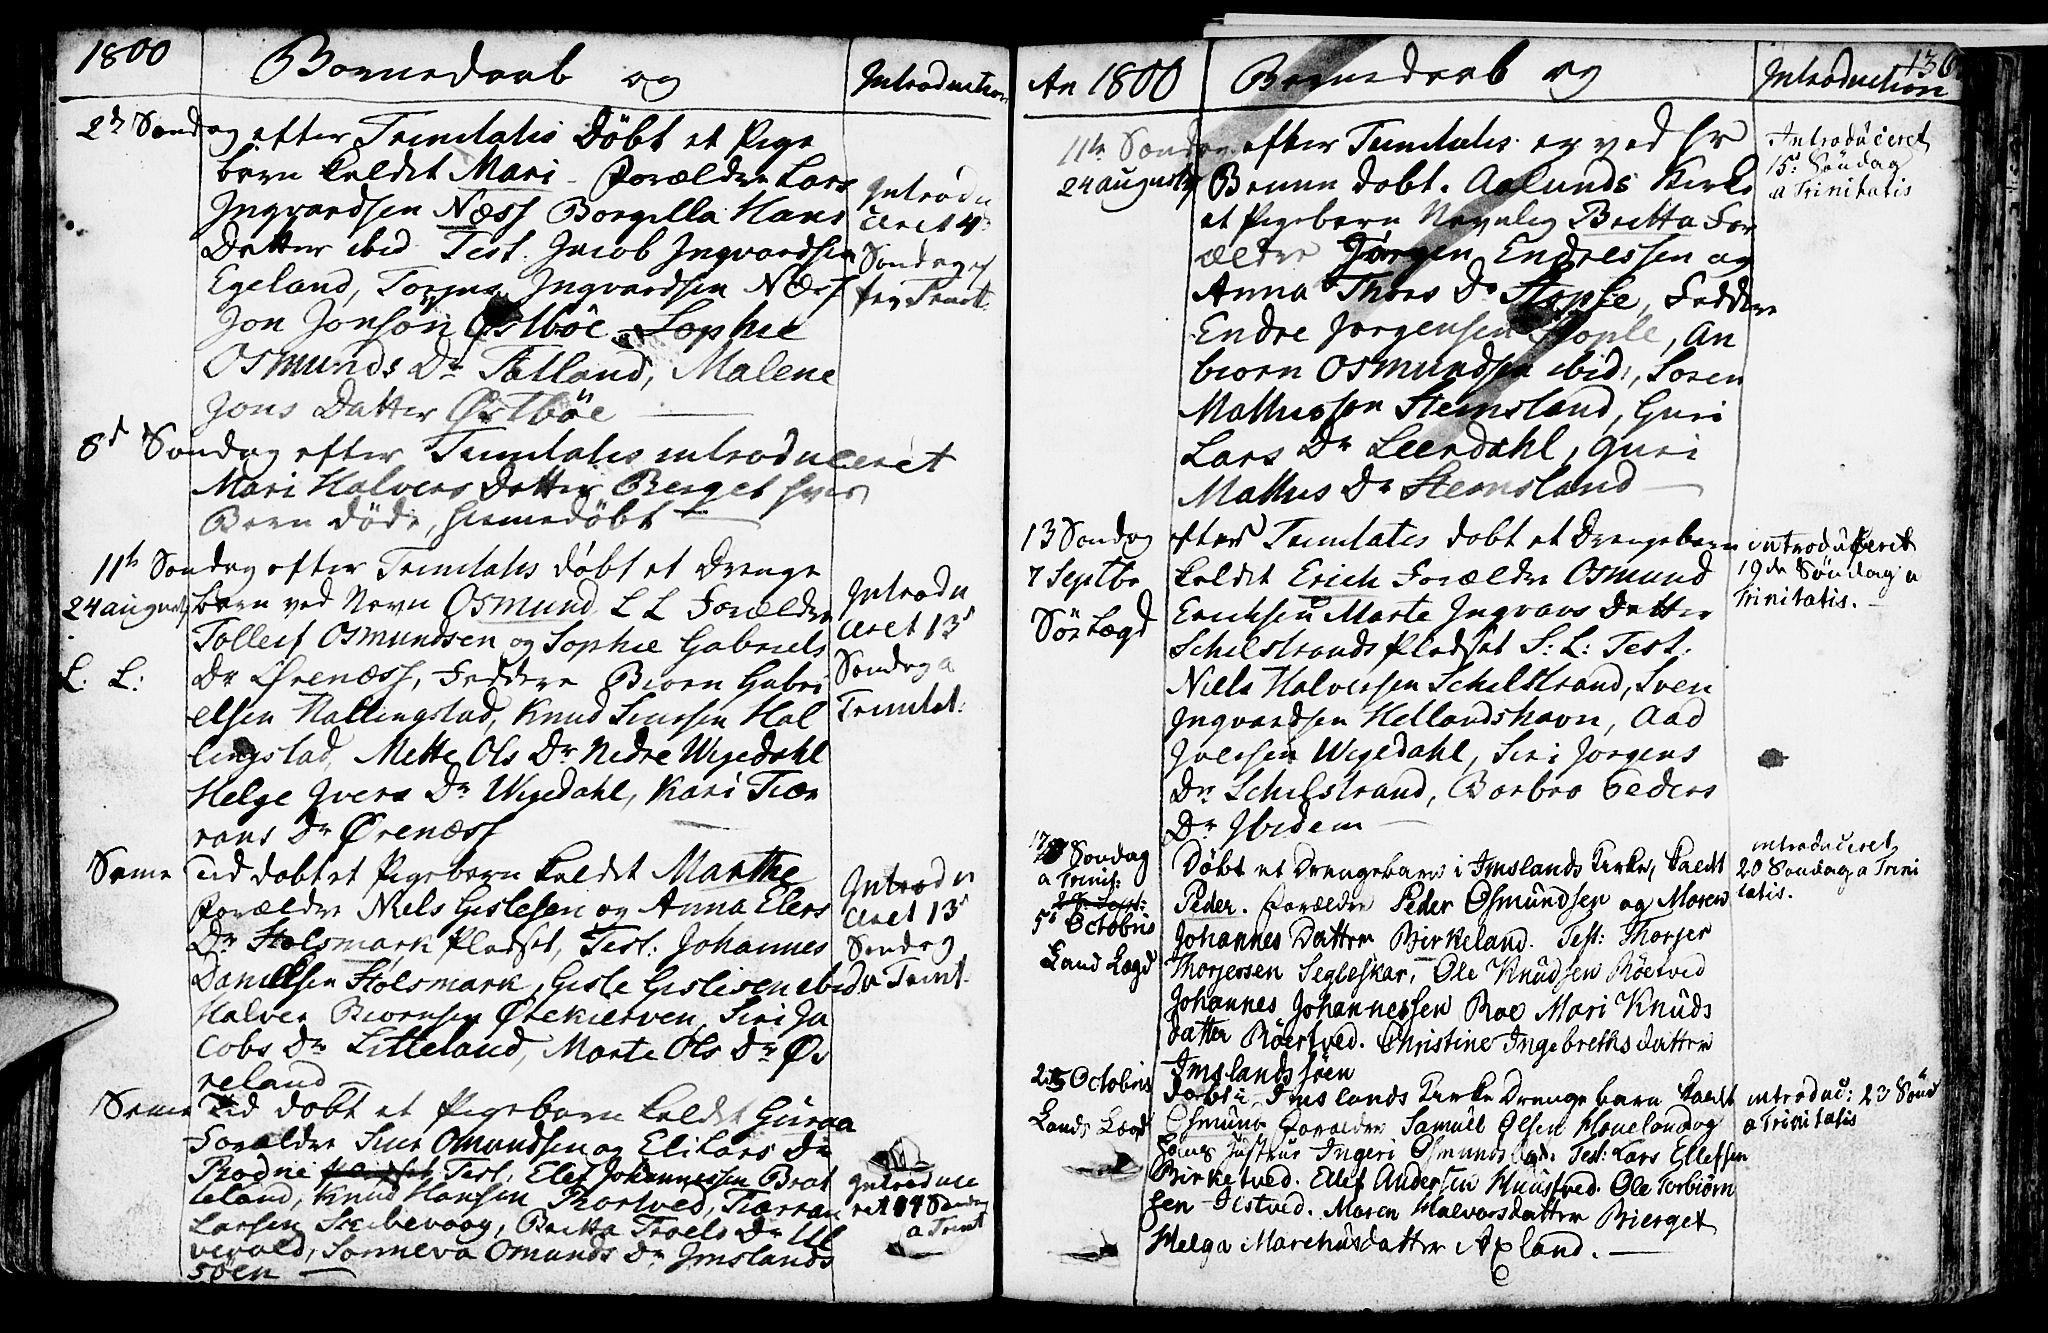 1800 Bornedaab og Introduction
2den Søndag efter Trinitatis Döbt et Pige
barn kaldet Mari - Forældre Lars
Ingvardsen Næss Borgilla Hans
Datter ibid Test. Jacob Ingvardsen
Egeland, Ingvardsen Næss
Jon Jonsön Østböe Sophie
Osmunds Dr Tatland, Malene
Jons Datter Østböe
Introdu
ceret 4d
Søndag ef
ter Trinit.
8d Søndag efter Trinitatis introduceret
Mari Halvors Datter Berget hvis
Barn döde, hiemedöbt
11te Søndag efter Trinitatis döbt et Drenge
24 august barn ved Navn Osmund L L Forældre
Tolleif Osmundsen og Sophie Gabriels
L. L: Dr Ørenæss, Faddere Biorn Gabri
elsen Hallingstad, Knud Simsen Hal
lingstad, Mette Ols Dr Nedre Wigedahl
Helge Ivers Dr Wigedahl, Kari Tiær
rans Dr Ørenæss
Introdu
ceret 13d
Søndag a
Trinitat:
Same Tid dobt et Pigebarn kaldet Marthe
Forældre Niels Gislesen og Anna Elers
Dr Stolsmark Pladset, Test: Johannes
Danielsen Stolsmark, Gisle Gislesen ibid
Halvor Biornsen Ørekierven, Siri Ja
cobs Dr Litteland, Marte Ols Dr Ø
reland
Introdu
ceret 13d
Søndag
a Trinit.
Same Tid dobt et Pigebarn kaldet Guroa
Forældre Simen Omundsen og Eli Lars Dr
Rodne Test. Elef Johannessen Brat
teland, Knud Hansen Thortved, Tiærran
Larsen Skibevaag, Britta Troels Dr Ul
vevold, Sonneva Omunds Dr Imslands
søen
Introduce
ret 14 Søndag
a Trinit
An 1800 Bornedaab og Introduction 136
11te Søndag efter Trinitatis og ved hr
24 august Bruun dobt i Aalunds Kirke
et Pigebarn Navnlig Britta For
ældre Jørgen Endressen og
Anna Thors Dr Stople, Faddere
Endre Jorgensen Stople, An
biorn Osmundsen ibid:, Soren
Mathissen Stemsland, Guri
Lars Dr Leerdahl, Guri
Mathis Dr Stemsland
Introduceret
15: Søndag
a Trinitatis
13 Søndag efter Trinitatis dobt et Drengebarn
7 Septbr kaldet Erich Forældre Osmund
Sör Lægd Erichsen Marte Ingvars Datter
Schelstrands Pladset S: L: Test:
Niels Halversen Schelstrand, Sven
Ingvardsen Hellandshavn, Aad
Iversen Wigedahl, Siri Jorgens
Dr Schelstrand, Borbro Peders
Dr Ibidem
introduceret
19de Søndag a
Trinitatis.
17 Søndag
a Trinit:
5t Octobris
Land Lægd
Döbt et Drengebarn i Imslands Kirke, kaldt
Peder. Forældre Peder Osmundsen og Maren
Johannes Datter Birkeland. Test: Thorger
Thorjersen Segleskar, Ole Knudsen Röetved
Johannes Johannessen Roe Mari Knuds
datter Röertved. Christine Ingebreths datter
Imslandssöen
introduceret
20 Søndag a Trini
tatis.
25 Octobris
Lands Lægd
Dobt i Imslands Kirke Drengebarn kaldt
Osmund Forældre Samuel Olsen Haveland og
Hans Justrue Ingeri Osmunds Test: Lars Ellefsen
Birketved. Ellef Andersen Knustved. Ole Torbiørn
sen Jistved. Maren Halvorsdatter Bierget
Helga Marchusdatter Axland.
introduc: 23 Sönd
a Trinitatis